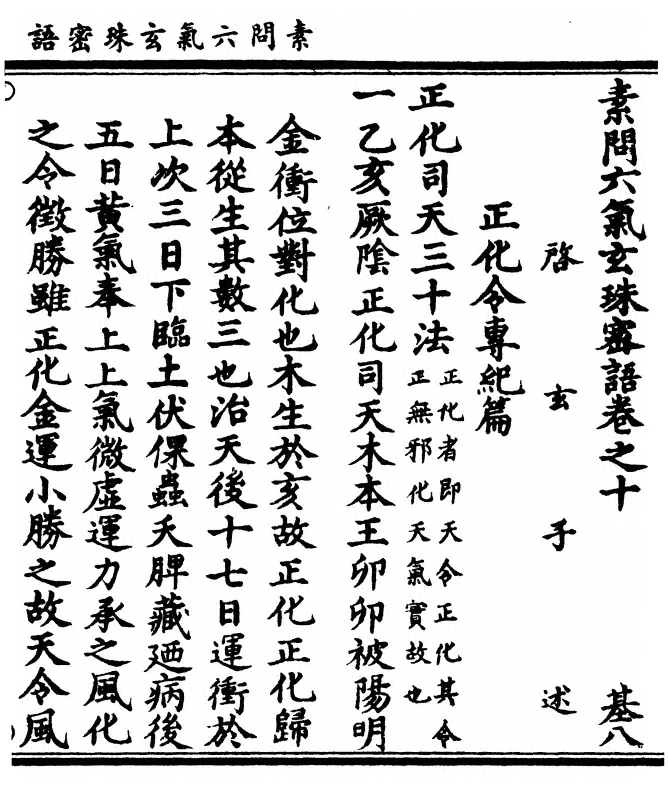 素問六氣玄珠密語
素問六氣玄珠密語卷之十　基八
啓玄子述
正化令專紀篇
正化司天三十法正化者即天令正化其令
正無邪化天氣實故也
一乙亥厥陰正化司天木本王卯卯被陽明
金衝位對化也木生於亥故正化正化歸
本從生其數三也治天後十七日運衝於
上次三日下臨土伏倮蟲夭脾藏廼病後
五日黃氣奉上上氣微虛運力承之風化
之令徵勝雖正化金運小勝之故天令風